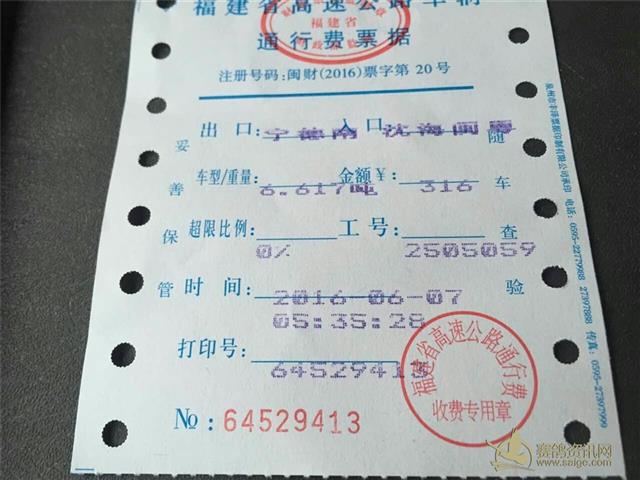 福建省高速公路车辆
通行费票据
福建省
注册号码:闽财(2016)票字第 20号
出口: 宁德南 入口 沈海闽
车型/重量: 6.617吨 金额¥: 316
超限比例: 0% 工号: 2505059
时间: 2016-06-07
05:35:28
打印号: 64529413
№: 64529413
妥善保管
随车查验
福建省高速公路通行费
收费专用章
泉州市丰泽票据印制有限公司承印 电话: 0595-22779988 27397888 传真: 0595-27397999
赛鸽资讯网
www.saige.com